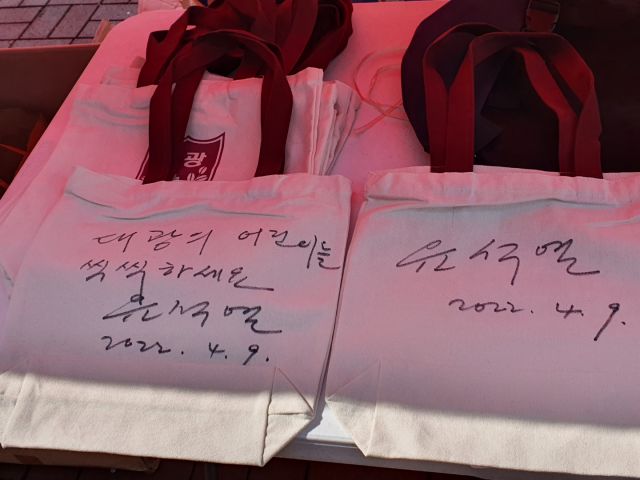 광
대광의 어린이들
씩씩하세요
윤석열
2022. 4. 9.
윤석열
2022. 4. 9.